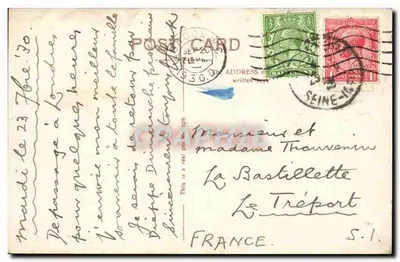 POST CARD
ADDRESS
mardi le 23 7bre '30
De passage à Londres
pour quelques heures
j'envoie mon meilleur
souvenir à toute la famille
Je serais de retour par
Dieppe Dimanche prochain
This is a real photograph
LONDON
SEP
1930
SEINE-
Monsieur et
madame Thouvenin
La Bastillette
Le Tréport
FRANCE.
S.I.